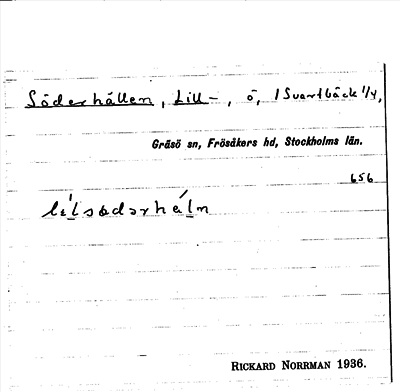 Söderhällen, Lill-, ö, 1 Svartbäck 1/4,
Gräsö sn, Frösåkers hd, Stockholms län.
656
RICKARD NORRMAN 1936.